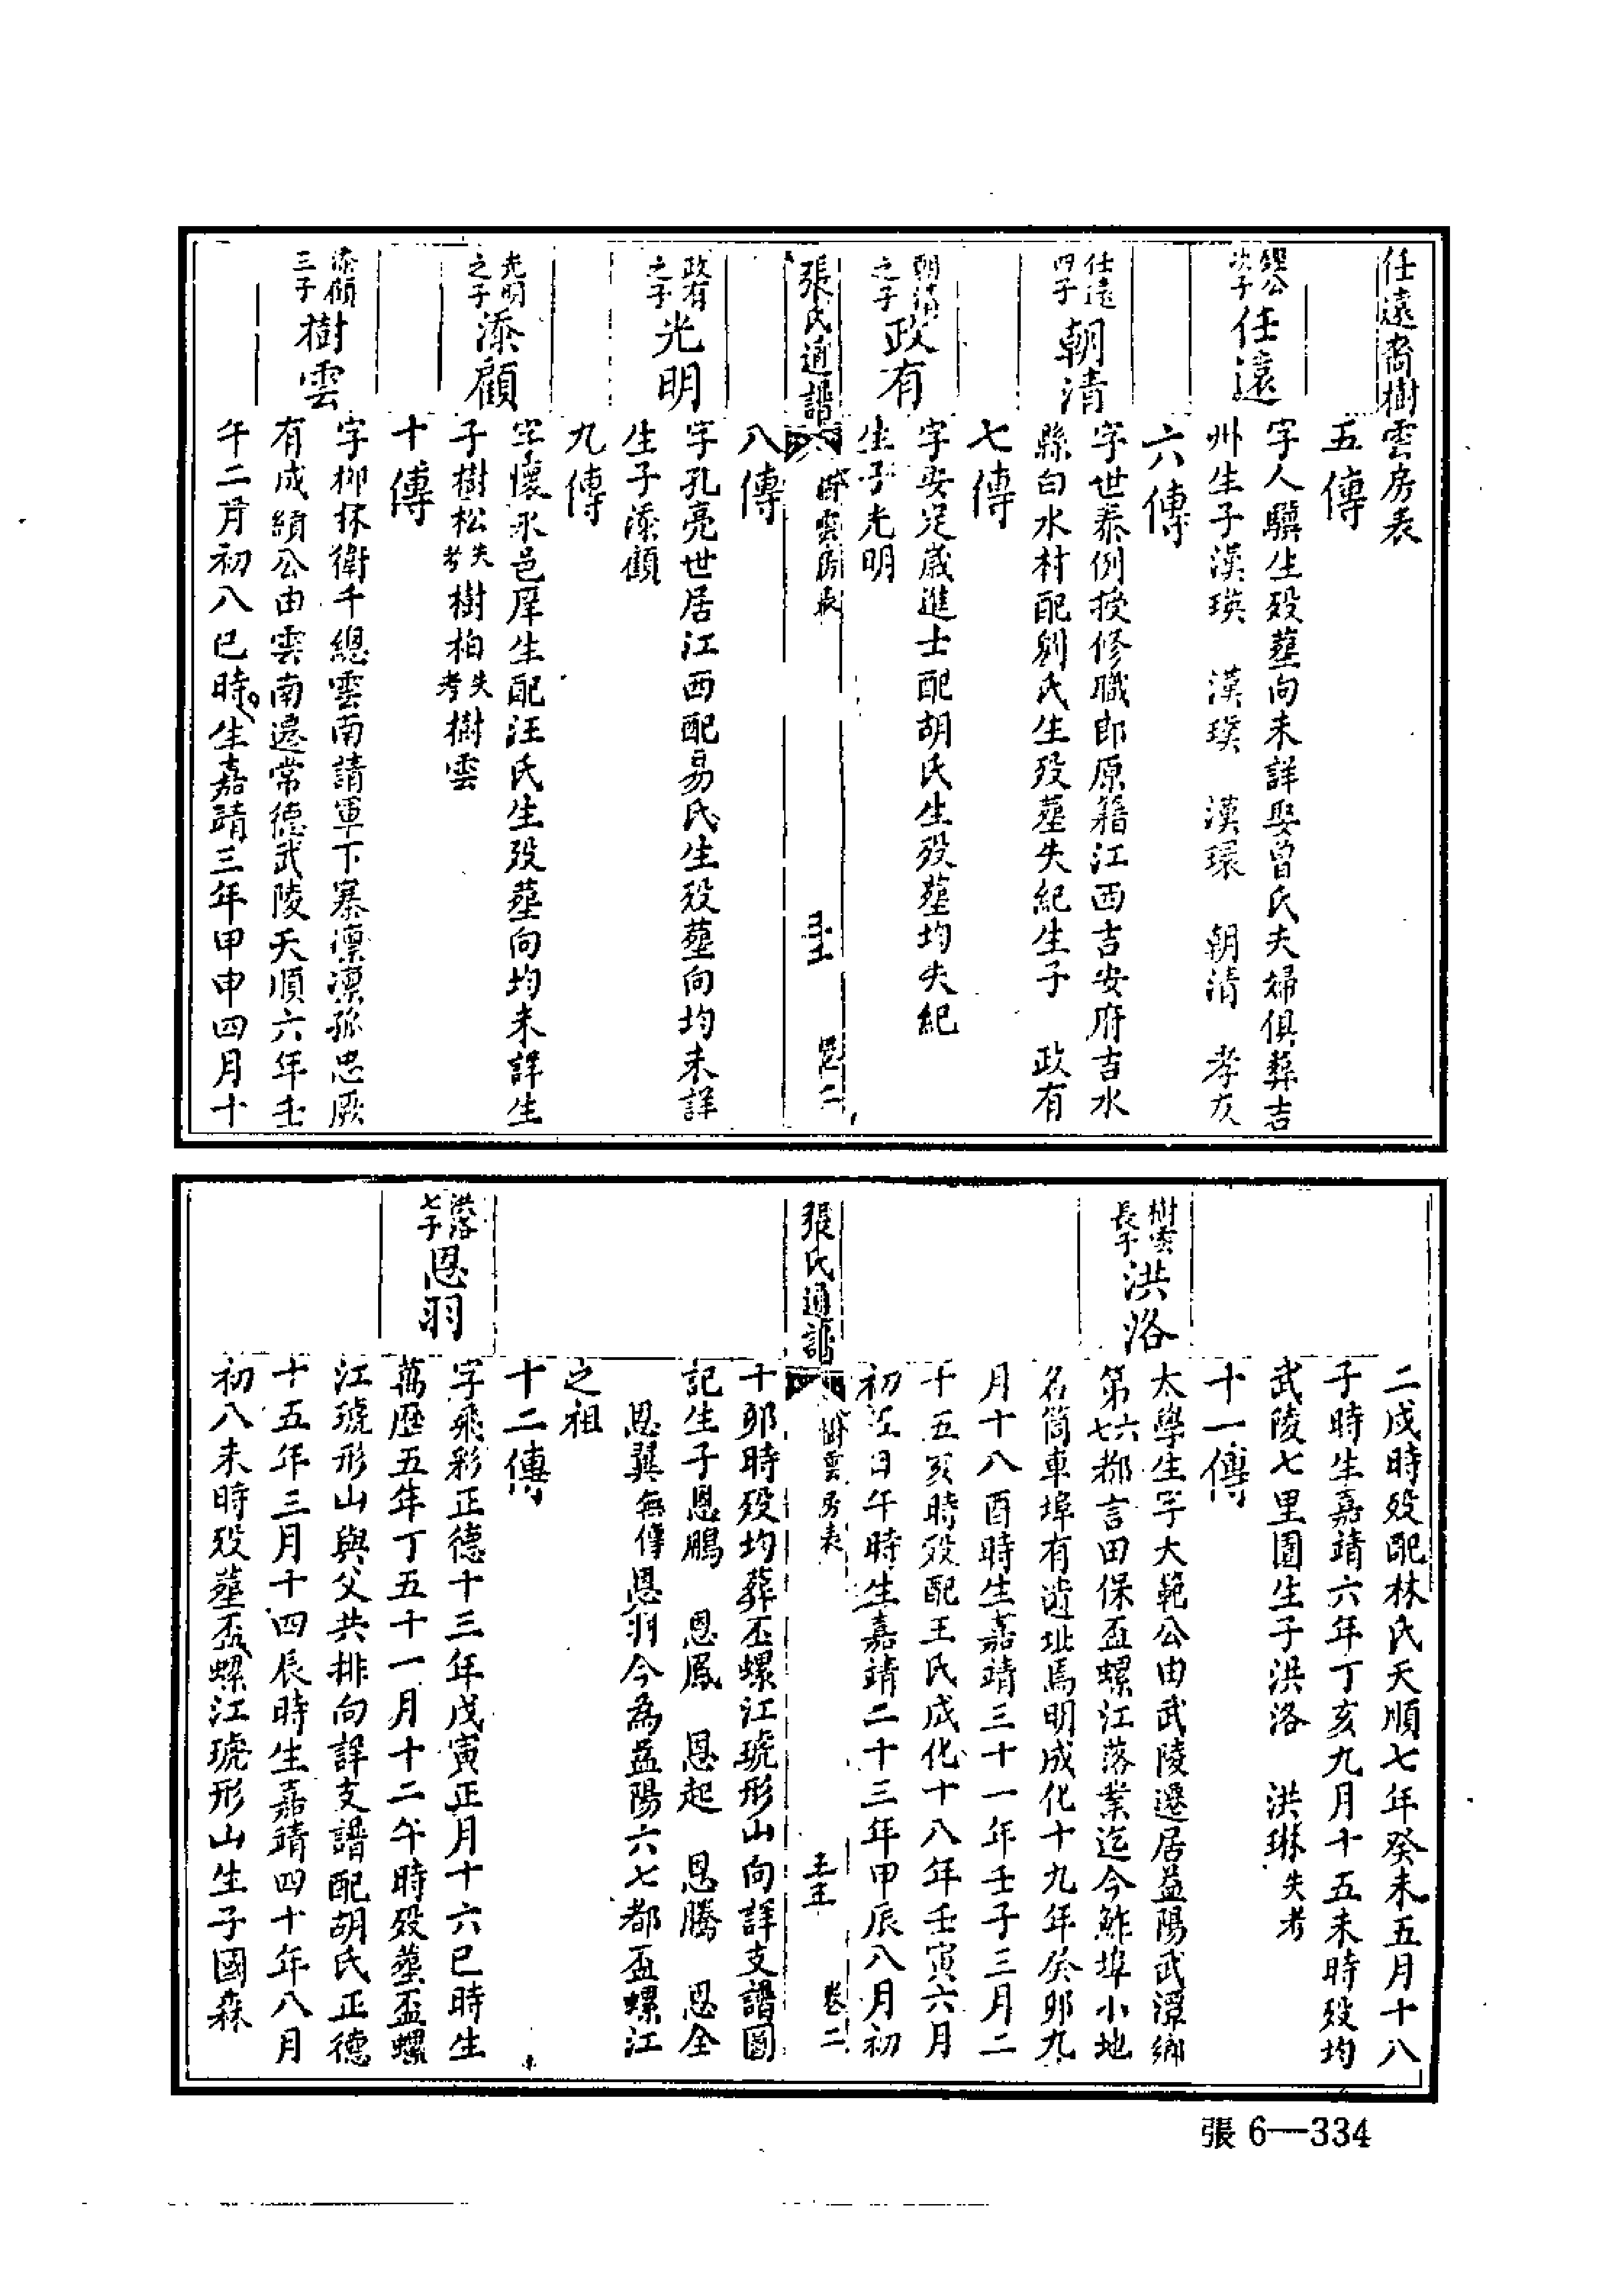 任遠裔樹雲房表
五傳
錕公次子 任遠
字人驥生歿塟向未詳娶曾氏夫婦俱葬吉
州生子漢瑛 漢瑛 漢環 朝清 孝友
六傳
任遠四子 朝清
字世泰例授修職郎原籍江西吉安府吉水
縣白水村配劉氏生歿塟失紀生子 政有
七傳
朝清之子 政有
字安足歲進士配胡氏生歿塟均失紀
生子光明
張氏通譜 樹雲房表 卷二
八傳
政有之子 光明
字孔亮世居江西配易氏生歿塟向均未詳
生子添顧
九傳
光明之子 添顧
字懷永邑庠生配汪氏生歿塟向均未詳生
子樹松失考樹柏失考樹雲
十傳
添顧三子 樹雲
字柳林衛千總雲南請軍下寨凛凛孤忠厥
有成績公由雲南遷常德武陵天順六年壬
午二月初八巳時生嘉靖三年甲申四月十
二戌時歿配林氏天順七年癸未五月十八
子時生嘉靖六年丁亥九月十五未時歿均
武陵七里園生子洪洛 洪琳失考
十一傳
樹雲長子 洪洛
太學生字大範公由武陵遷居益陽武潭鄉
第六七都言田保盃螺江落業迄今鮓埠小地
名筒車埠有遺址焉明成化十九年癸卯九
月十八酉時生嘉靖三十一年壬子三月二
十五亥時歿配王氏成化十八年壬寅六月
初江日午時生嘉靖二十三年甲辰八月初
張氏通譜 樹雲房表 卷二
十卯時歿均葬盃螺江琥形山向詳支譜圖
記生子恩鵬 恩鳳 恩起 恩騰 恩全
恩翼無傳恩羽今為益陽六七都盃螺江
之祖
十二傳
洪洛七子 恩羽
字飛彩正德十三年戊寅正月十六巳時生
萬歷五年丁丑十一月十二午時歿塟盃螺
江琥形山與父共排向詳支譜配胡氏正德
十五年三月十四辰時生嘉靖四十年八月
初八未時歿塟盃螺江琥形山生子國森
張6—334